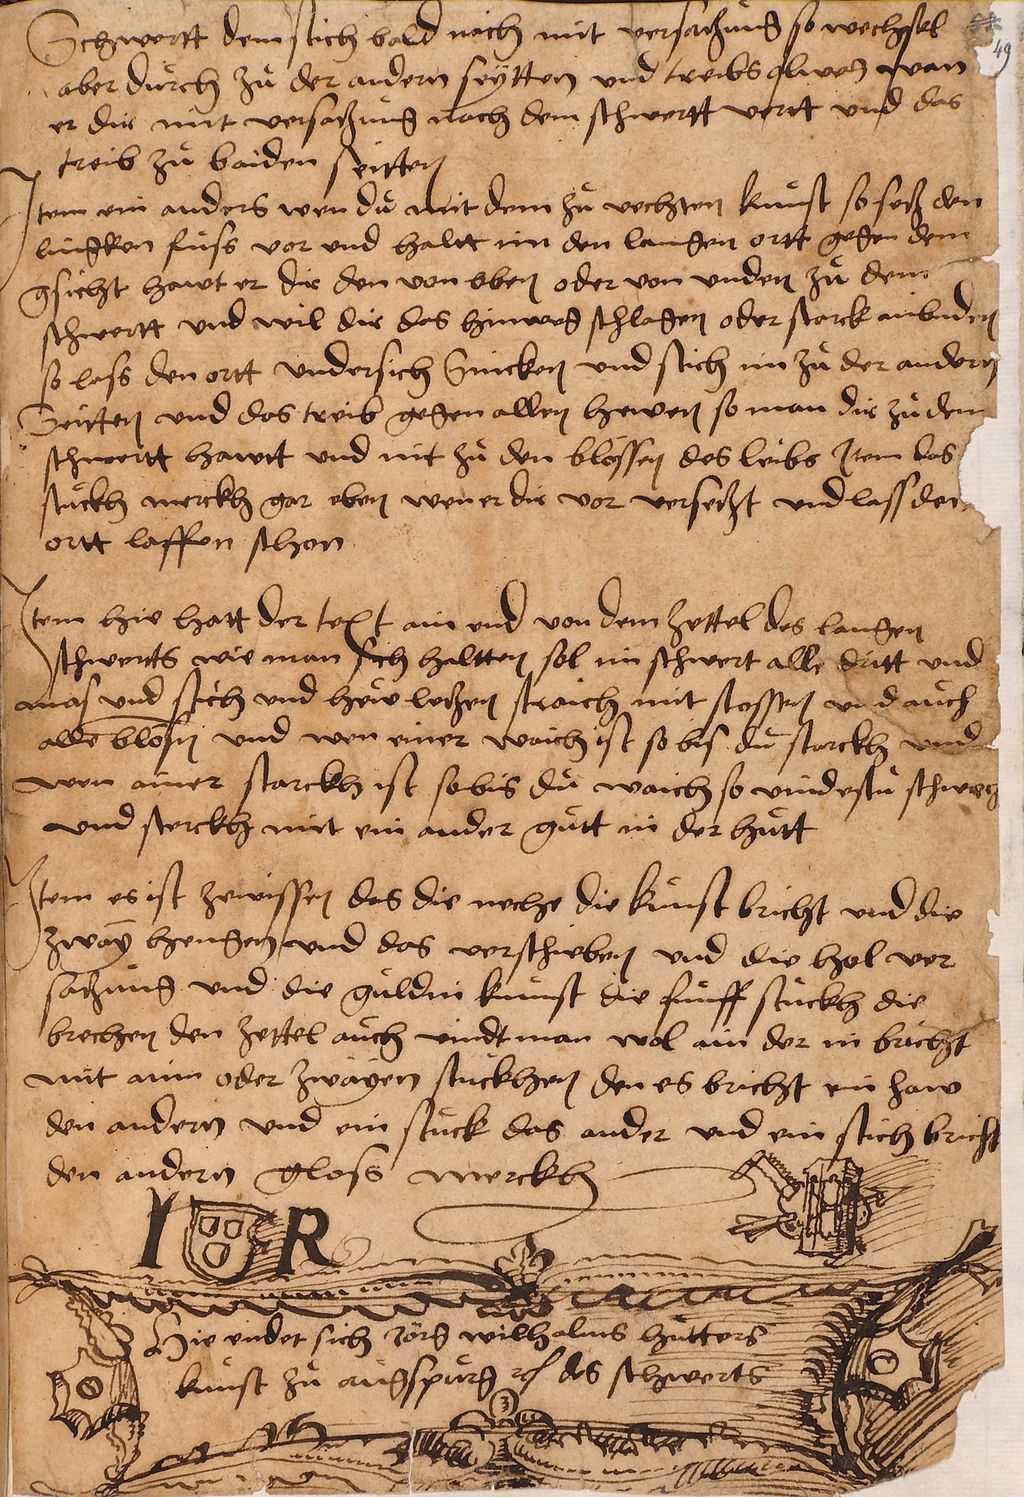 Schwertt dem stich bald nach mit versatzung so wechssel
49
aber durch zů der andern seÿtten und treibs alweg wan
er dir mit versatzung nach dem schwertt vertt und das
treib zů baiden seitten
Item ein anders wen dů mit dem zů vechten kunst so setz den
lingken fuss vor und haltt im den langen ortt gegen dem
gsicht hawt er dir den von oben oder von unden zů dem
schwertt und wil dir das hinweg schlagen oder starck anbinden
so lass den ortt undersich sincken und stich im zů der andern
Seitten und das treib gegen allen hewen so man dir zů dem
schwertt hawtt und nit zů den blössen des leibs Item das
stuckh merckh gar eben wen er dir vor versetzt und lass den
ortt lauffen schon
Item hie hatt der text ain end von dem zettel des langen
schwertts wie man sich haltten sol im schwert alle dritt und
mas und stich und hew letzen straich mit stossen und auch
alle blosen und wen einer waich ist so bis dů starckh und
wen ainer starckh ist so bis dů waich so vindestu schwech
und sterckh mit ein ander gůtt in der hůtt
Item es ist zewissen das die neche die kunst bricht und die
zwaÿ hengen und das verschieben und die hol ver
satzung und die guldin kunst die funff stuckh die
brechen den zettel auch vindt man wol ain der in bricht
mit aim oder zwayen stuckhen den es bricht ein haw
den andern und ein stuck das ander und ein stich bricht
den andern gloss merckh
I R
Hie endet sich Jörg wilhalms hutters
kunst zů augspurg des schwerts